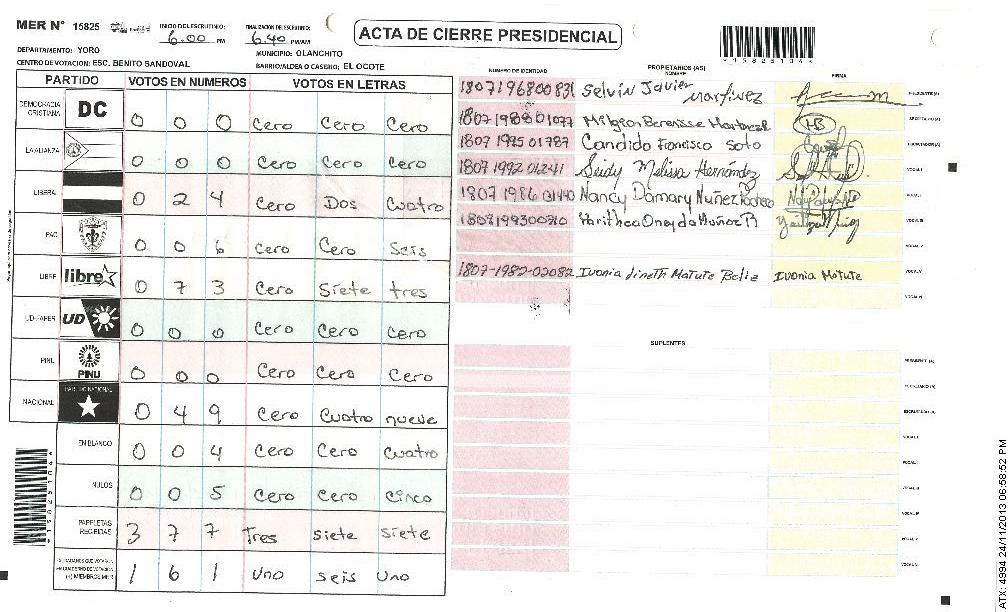 MER N° 15825
INICIO DEL ESCRUTINIO: 6.00 PM
FINALIZACION DEL ESCRUTINIO: 6.40 PM/AM
ACTA DE CIERRE PRESIDENCIAL
DEPARTAMENTO: YORO
MUNICIPIO: OLANCHITO
CENTRO DE VOTACION: ESC. BENITO SANDOVAL
BARRIO/ALDEA O CASERIO: EL OCOTE
PARTIDO VOTOS EN NUMEROS VOTOS EN LETRAS
DEMOCRACIA CRISTIANA DC 0 0 0 Cero Cero Cero
LA ALIANZA 0 0 0 Cero Cero Cero
LIBERAL 0 2 4 Cero Dos Cuatro
PAC 0 0 6 Cero Cero Seis
LIBRE libre 0 7 3 Cero Siete tres
UD-FAPER UD 0 0 0 Cero Cero Cero
PINU PINU 0 0 0 Cero Cero Cero
NACIONAL PARTIDO NACIONAL 0 4 9 Cero Cuatro nueve
EN BLANCO 0 0 4 Cero Cero Cuatro
NULOS 0 0 5 Cero Cero Cinco
PAPELETAS RECIBIDAS 3 7 7 Tres siete siete
CIUDADANOS QUE VOTARON EN CUADERNO DE VOTACION (+) MIEMBROS MER 1 6 1 Uno seis Uno
NUMERO DE IDENTIDAD
PROPIETARIOS (AS)
NOMBRE
FIRMA
1807196800831 Selvin Javier Martinez PRESIDENTE (A)
1807198801077 HB SECRETARIO (A)
1807 1995 01787 Candido Francisco Soto ESCRUTADOR (A)
1807 1992 01241 Seidy Melissa Hernández VOCAL I
1807 1986 01440 Nancy Damary Nuñez VOCAL II
VOCAL III
VOCAL IV
1807-1982-02082 Ivonia Lineth Matute Beliz Ivonia Matute VOCAL V
VOCAL VI
SUPLENTES
PRESIDENTE (A)
SECRETARIO (A)
ESCRUTADOR (A)
VOCAL I
VOCAL II
VOCAL III
VOCAL IV
VOCAL V
VOCAL VI
ATX: 4994 24/11/2013 06:58:52 PM